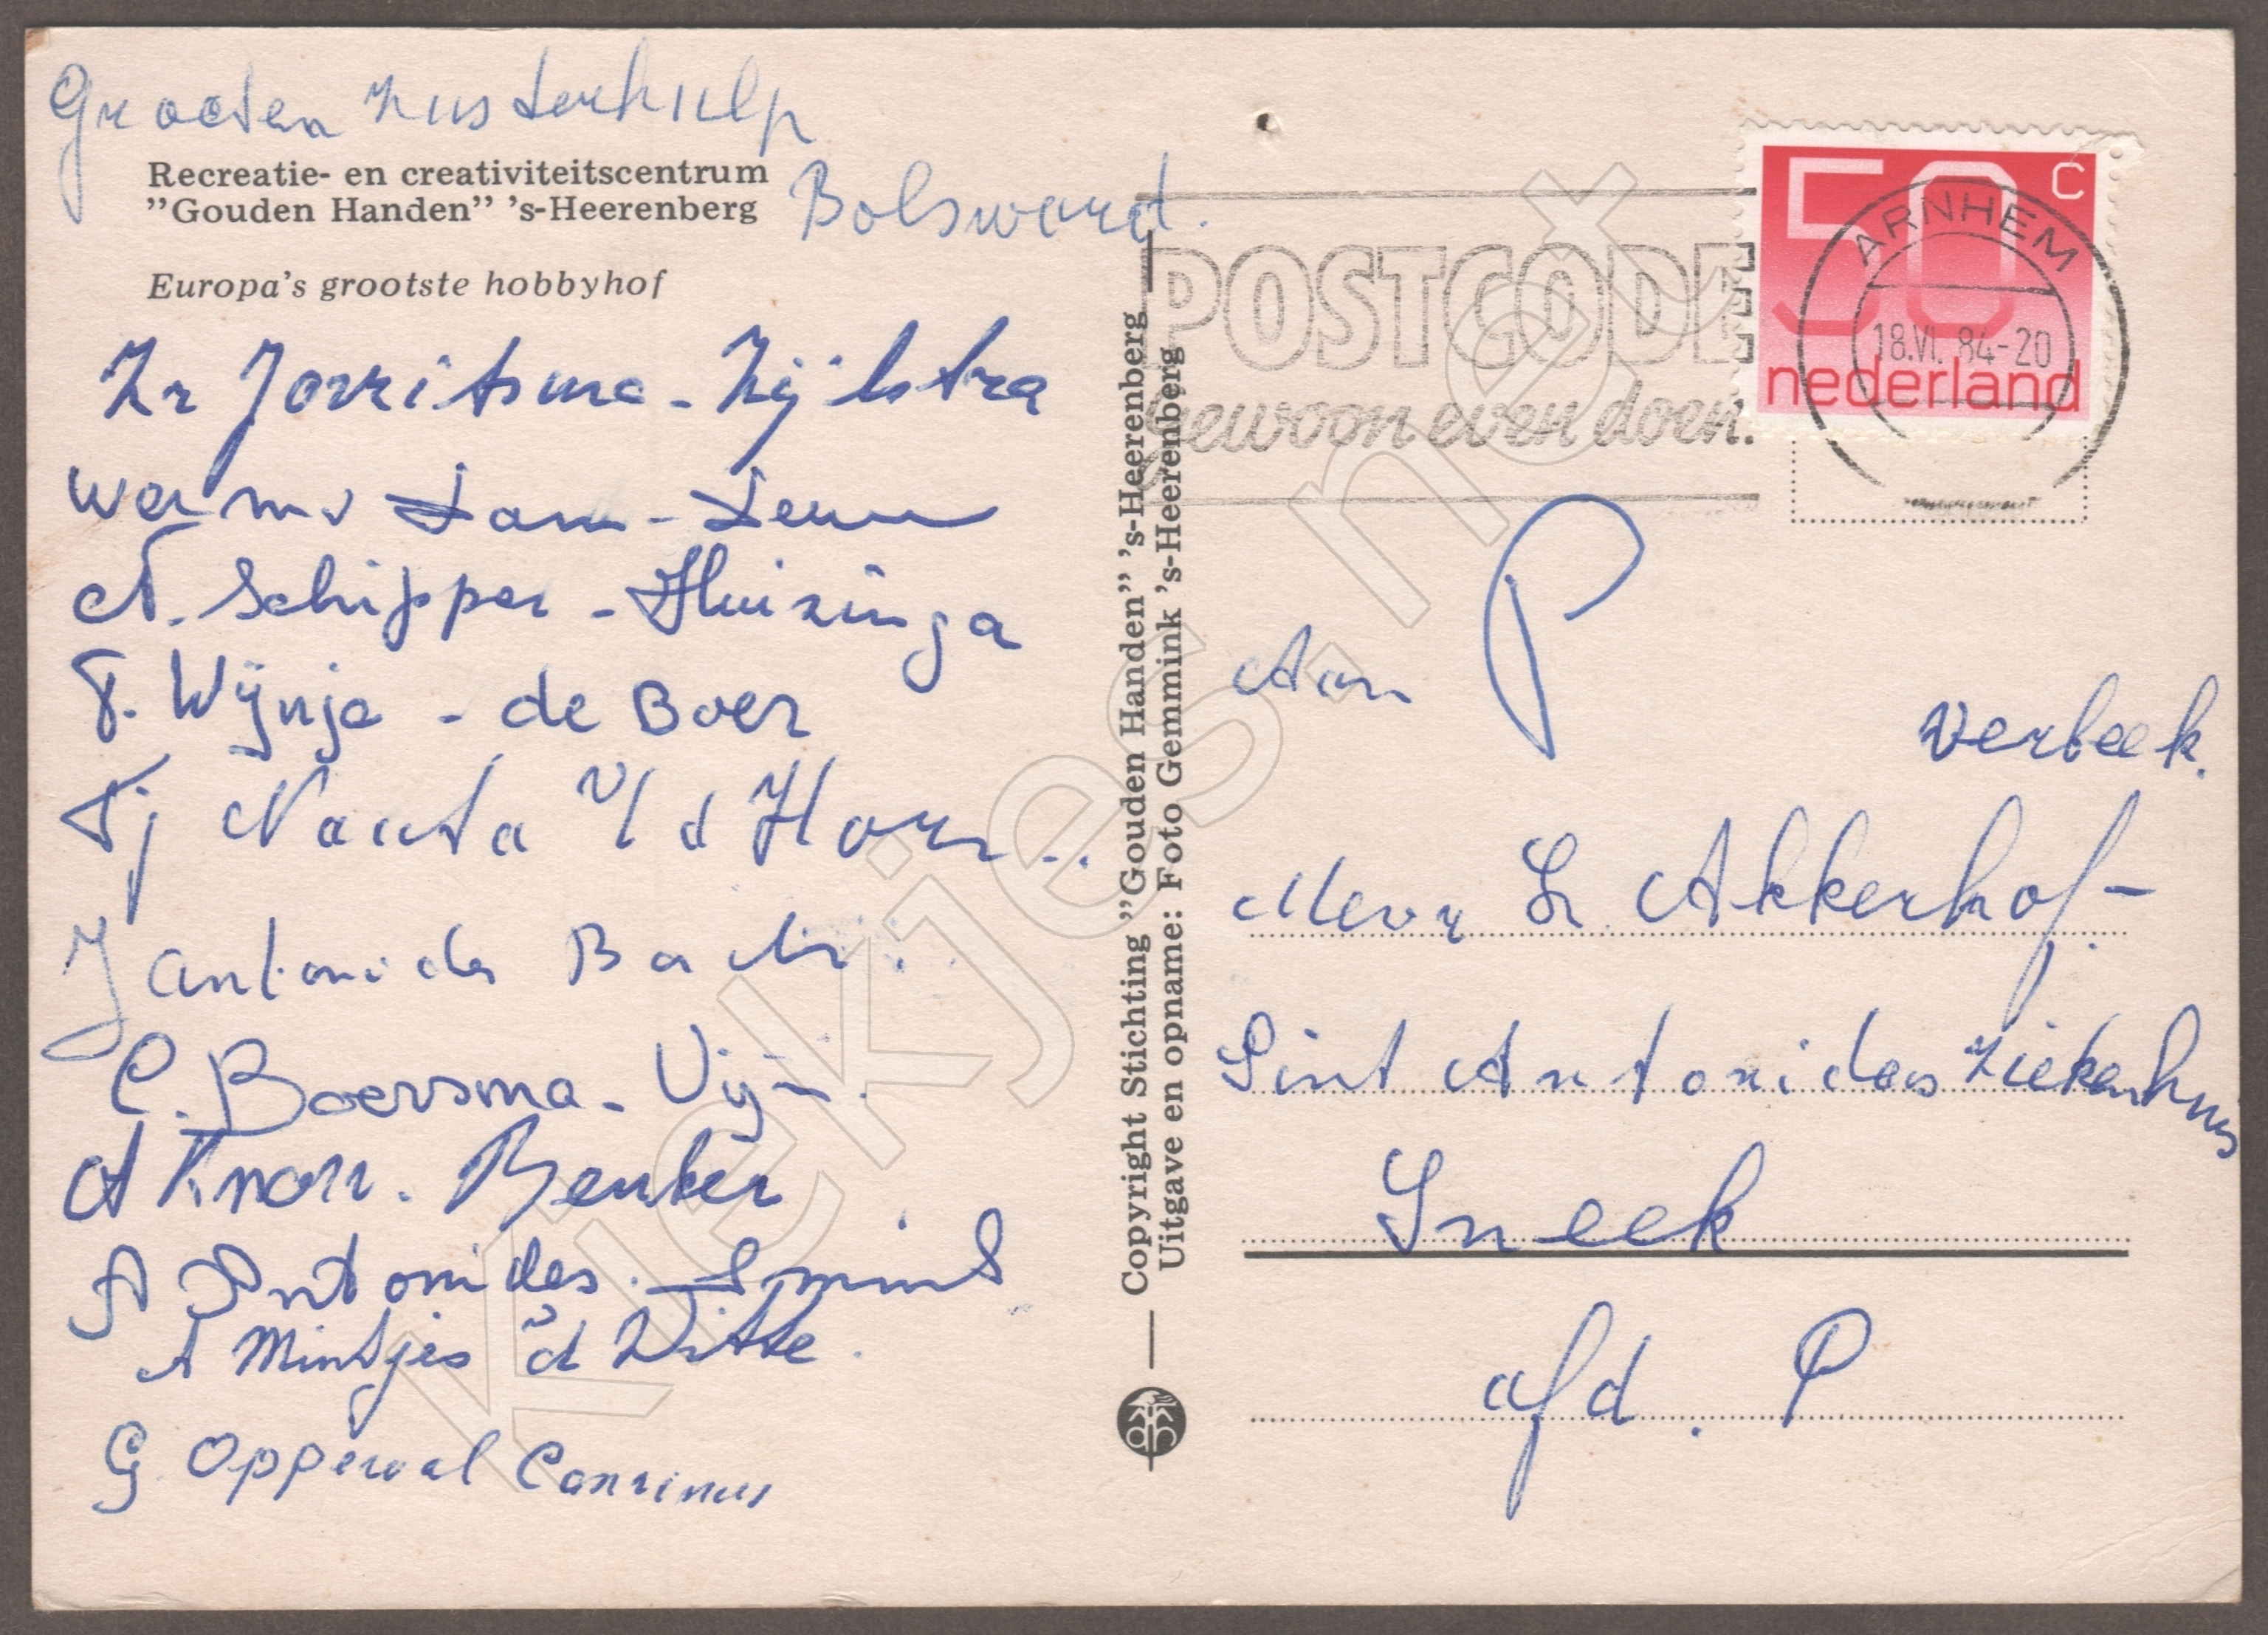 Groeten zusterhulp
Bolsward.
Recreatie- en creativiteitscentrum
”Gouden Handen” ’s-Heerenberg
Europa’s grootste hobbyhof
Zr Jorritsma - Zijlstra
N. Schipper - Huizinga
T. Wÿnja - de Boer
Tj Nauta v/d Horn
J Antonides
C. Boersma - 
A Knorr. Beuker
A Antonides. Smid
A Mintjes d Witte.
G Opperwal Conrinus
Copyright Stichting ”Gouden Handen” ’s-Heerenberg
Uitgave en opname: Foto Gemmink ’s-Heerenberg
POSTCODE
gewoon even doen.
50 c
nederland
ARNHEM
18.VI.84-20
P
Aan
Verbeek.
Mevr L. Akkerhof-
Sint Antonides ziekenhuis
Sneek
afd. P
Kiekjes.net